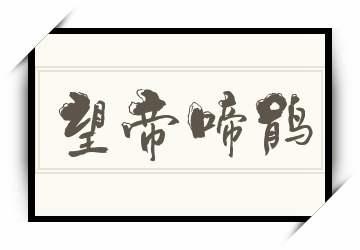 望帝啼鹃